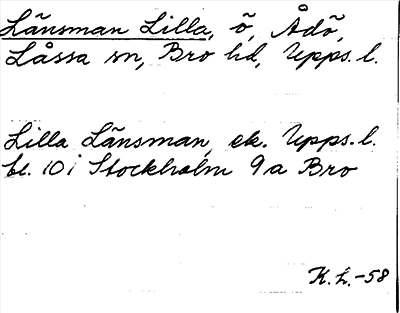 Länsman Lilla, ö, Ådö,
Låssa sn, Bro hd, Upps. l.
Lilla Länsman, ek. Upps. l.
bl. 10 i Stockholm 9a Bro
K. L. -58